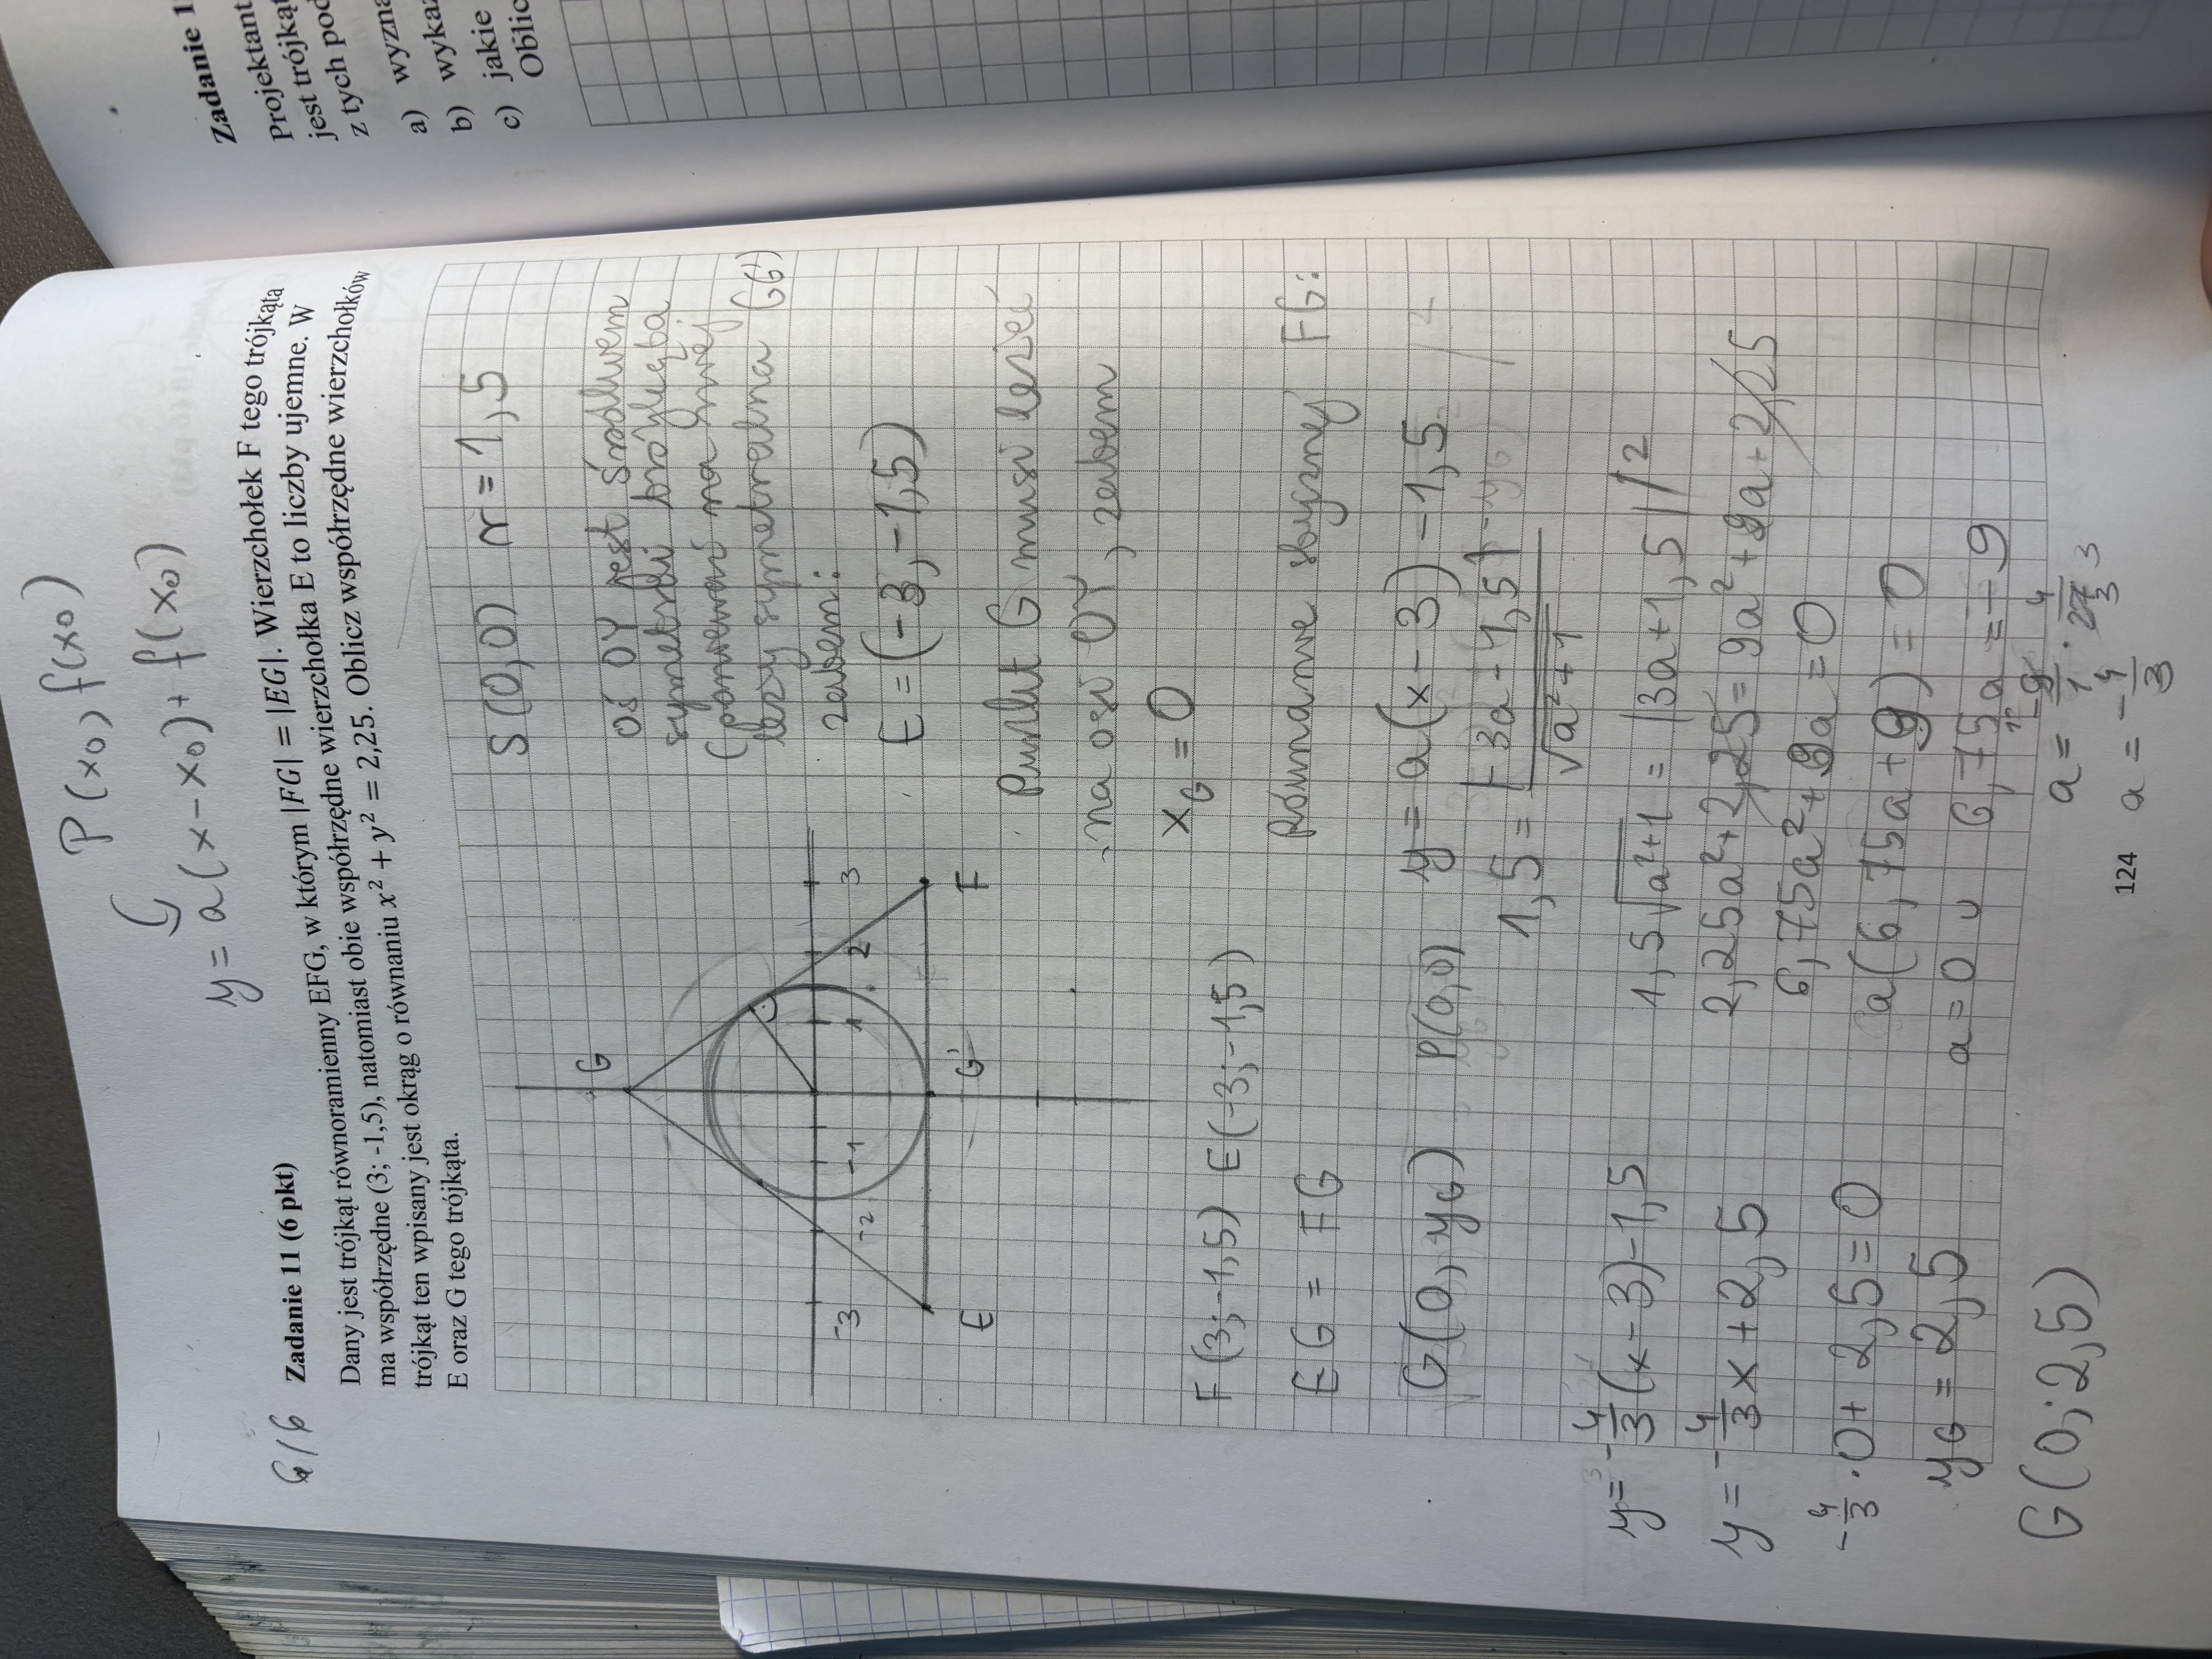 P(x₀, f(x₀)
y = a(x-x₀) + f(x₀)
6/6
Zadanie 11 (6 pkt)
Dany jest trójkąt równoramienny EFG, w którym |FG| = |EG|. Wierzchołek F tego trójkąta
ma współrzędne (3; -1,5), natomiast obie współrzędne wierzchołka E to liczby ujemne. W
trójkąt ten wpisany jest okrąg o równaniu x² + y² = 2,25. Oblicz współrzędne wierzchołków
E oraz G tego trójkąta.
G
-3
-2
-1
1
2
3
E
G'
F
S(0,0) r=1,5
oś OY jest środkiem
symetrii trójkąta
(ponieważ na
leży symetralna GG')
zatem:
E=(-3,-1,5)
Punkt G musi leżeć
na osi OY, zatem
x_G = 0
F(3;-1,5) E(-3;-1,5)
EG = FG
Równanie stycznej FG:
G(0, y_G) P(0,0) y = a(x-3)-1,5
1,5 = |-3a-1,5| / √a²+1
1,5√a²+1 = |3a+1,5| /²
2,25a²+2,25=9a²+9a+2,25
6,75a²+9a=0
a(6,75a+9)=0
a=0 ∪ 6,75a=-9
a= -9/1 · 4/27 3
a = -4/3
y=-4/3(x-3)-1,5
y=-4/3x+2,5
-4/3·0+2,5=0
y_G = 2,5
G(0;2,5)
124
Zadanie 1
Projektant
jest trójkąt
z tych pod
a) wyzna
b) wykaż
c) jakie
Oblic